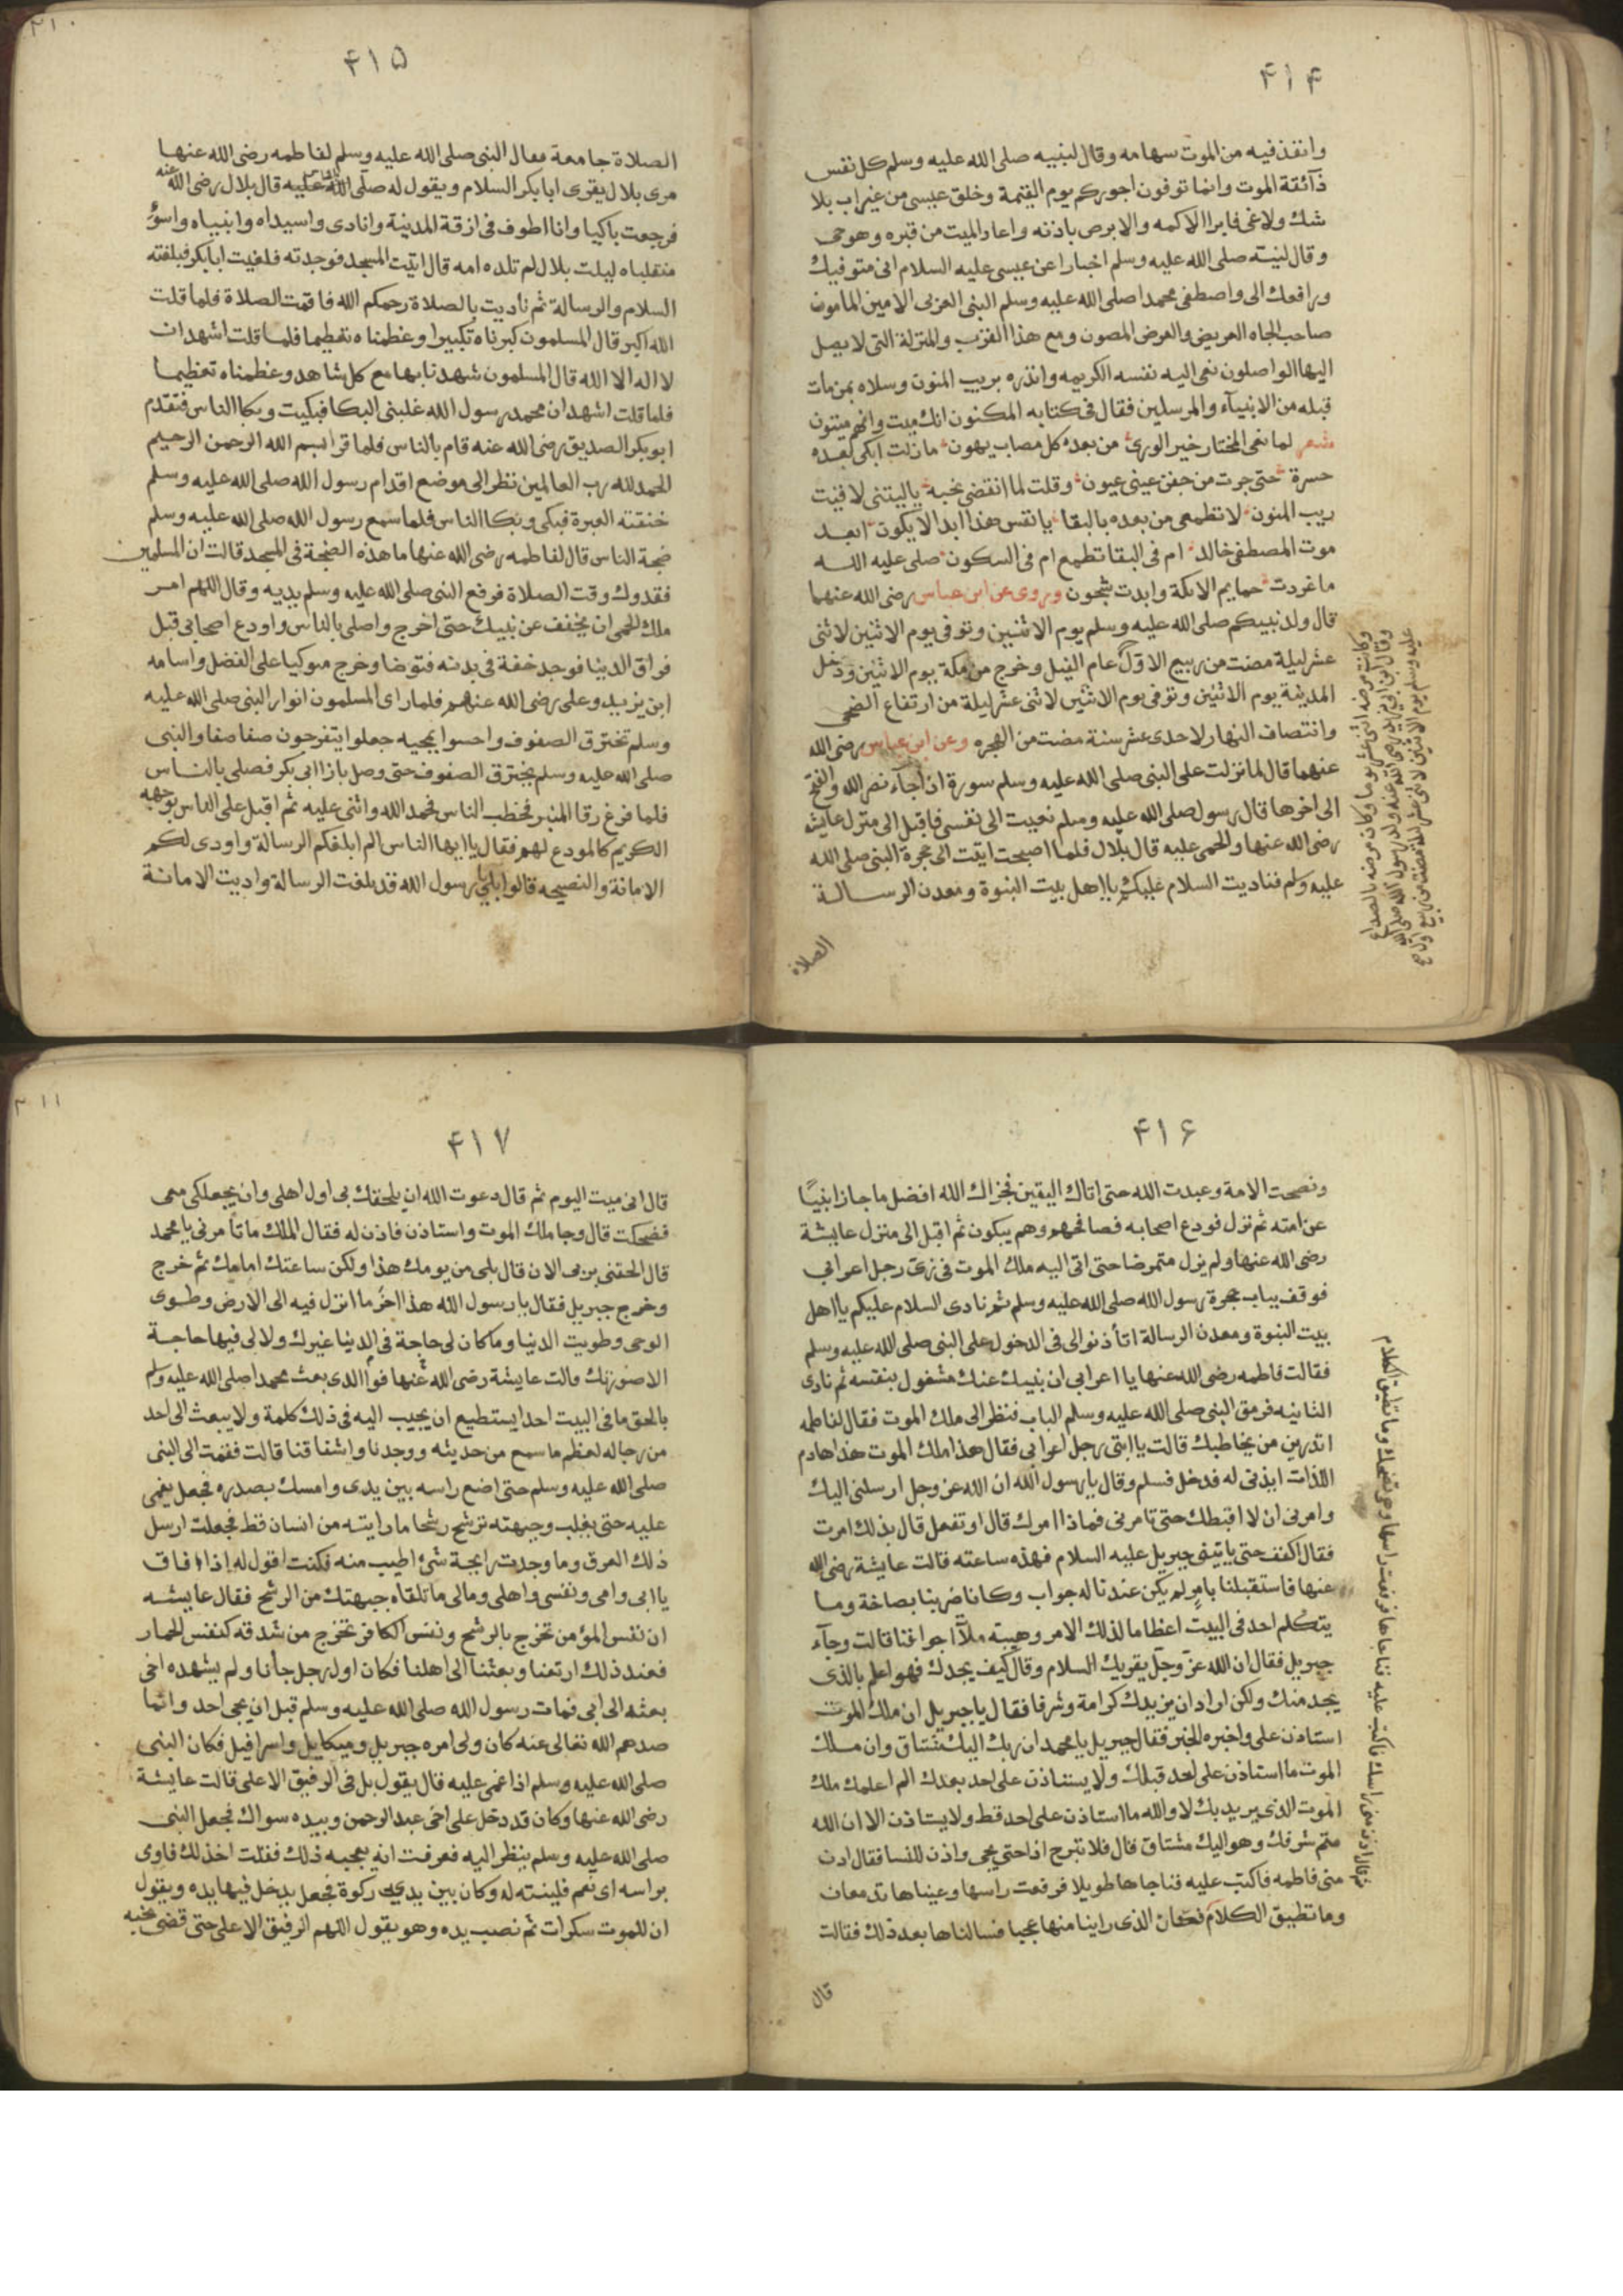 ۴۱۴
وانفذ فيه من الموت سهامه وقال لنبيه صلى الله عليه وسلم كل نفس
ذآئقة الموت وانما توفون اجوركم يوم القيمة وخلق عيسى من غير اب بلا
شك ولا غى فابرا الاكمه والابرص باذنه واعاد الميت من قبره وهو حى
وقال لنبيه صلى الله عليه وسلم اخبارا عن عيسى عليه السلام انى متوفيك
ورافعك الى واصطفى محمدا صلى الله عليه وسلم النبى العربى الامين المامون
صاحب الجاه العريض والعرض المصون ومع هذا القرب والمنزلة التى لا يصل
اليها الواصلون نعى اليه نفسه الكريمه وانذره بريب المنون وسلاه بمن مات
قبله من الانبيآء والمرسلين فقال فى كتابه المكنون انك ميت وانهم ميتون
شعر لما نعى المختار خير الورى من بعده كل مصاب يهون ما زلت ابكى بعده
حسرة حتى جرت من جفن عينى عيون وقلت لما انقضى نحبه ياليتنى لاقيت
ريب المنون لا تطمعى من بعده بالبقا يا نفس هذا ابدا لا يكون ابعد
موت المصطفى خالد ام فى البقا تطمع ام فى السكون صلى عليه الله
ما غردت حمايم الايكة وابدت شجون وروى عن ابن عباس رضى الله عنهما
قال ولد نبيكم صلى الله عليه وسلم يوم الاثنين وتوفى يوم الاثنين لاثنى
عشر ليلة مضت من ربيع الاول عام الفيل وخرج من مكة يوم الاثنين ودخل
المدينة يوم الاثنين وتوفى يوم الاثنين لاثنى عشر ليلة من ارتفاع الضحى
وانتصاف النهار لاحدى عشر سنة مضت من الهجره وعن ابن عباس رضى الله
عنهما قال لما نزلت على النبى صلى الله عليه وسلم سورة اذا جآء نصر الله والفتح
الى اخرها قال رسول صلى الله عليه وسلم نعيت الى نفسى فاقبل الى منزل عايشه
رضى الله عنها والحمى عليه قال بلال فلما اصبحت اتيت الى حجرة النبى صلى الله
عليه وسلم فناديت السلام عليكم يا اهل بيت النبوة ومعدن الرسالة
الصلاة
وكانت مرضه اثنى عشر يوما وكان مرضه بالصداع
عليه وسلم يوم الاثنين لاثنى عشر ليلة مضت من ربيع
۴۱۵
الصلاة جامعة فقال النبى صلى الله عليه وسلم لفاطمه رضى الله عنها
مرى بلال يقرى ابا بكر السلام ويقول له صلى الله عليه قال بلال رضى الله عنه
فرجعت باكيا وانا اطوف فى ازقة المدينة وانادى واسيداه وانبياه واسوؤ
منقلباه ليلت بلال لم تلده امه قال اتيت المسجد فوجدته فلقيت ابابكر فبلغته
السلام والرسالة ثم ناديت بالصلاة رحمكم الله فاقمت الصلاة فلما قلت
الله اكبر قال المسلمون كبرناه تكبيرا وعظمناه تعظيما فلما قلت اشهد ان
لا اله الا الله قال المسلمون شهدنا بها مع كل شاهد وعظمناه تعظيما
فلما قلت اشهد ان محمد رسول الله غلبنى البكا فبكيت وبكا الناس فتقدم
ابو بكر الصديق رضى الله عنه قام بالناس فلما قرا بسم الله الرحمن الرحيم
الحمد لله رب العالمين نظر الى موضع اقدام رسول الله صلى الله عليه وسلم
خنقته العبرة فبكى وبكا الناس فلما سمع رسول الله صلى الله عليه وسلم
ضجة الناس قال لفاطمه رضى الله عنها ما هذه الضجة فى المسجد قالت ان المسلمين
فقدوك وقت الصلاة فرفع النبى صلى الله عليه وسلم يديه وقال اللهم امر
ملك الحمى ان يخفف عن نبيك حتى اخرج واصلى بالناس واودع اصحابى قبل
فراق الدنيا فوجد خفة فى بدنه فتوضا وخرج متوكيا على الفضل واسامه
ابن يزيد وعلى رضى الله عنهم فلما راى المسلمون انوار النبى صلى الله عليه
وسلم تخترق الصفوف واحسوا بمجيه جعلوا يتفرجون صفا صفا والنبى
صلى الله عليه وسلم يخترق الصفوف حتى وصل بازا ابى بكر فصلى بالناس
فلما فرغ رقا المنبر فخطب الناس فحمد الله واثنى عليه ثم اقبل على الناس بوجهه
الكريم كالمودع لهم فقال يا ايها الناس الم ابلغكم الرسالة واودى لكم
الامانة والنصيحه قالوا بلى يا رسول الله قد بلغت الرسالة واديت الامانة
۴۱۶
ونصحت الامة وعبدت الله حتى اتاك اليقين فجزاك الله افضل ما جازا نبيًا
عن امته ثم نزل فودع اصحابه فصافحهم وهم يبكون ثم اقبل الى منزل عايشة
رضى الله عنها ولم يزل متمرضا حتى اتى اليه ملك الموت فى زى رجل اعرابي
فوقف بباب حجرة رسول الله صلى الله عليه وسلم ثم نادى السلام عليكم يا اهل
بيت النبوة ومعدن الرسالة اتأذنوا لى فى الدخول على النبى صلى الله عليه وسلم
فقالت فاطمه رضى الله عنها يا اعرابى ان نبيك عنك مشغول بنفسه ثم نادى
الثانيه فرمق النبى صلى الله عليه وسلم الباب فنظر الى ملك الموت فقال لفاطمه
اتدرين من يخاطبك قالت يا ابتى رجل اعرابي فقال هذا ملك الموت هذا هادم
اللذات ايذنى له فدخل فسلم وقال يا رسول الله ان الله عز وجل ارسلنى اليك
وامرنى ان لا اقبضك حتى تامرنى فماذا امرك قال او تفعل قال بذلك امرت
فقال اكفف حتى ياتينى جبريل عليه السلام فهذه ساعته قالت عايشة رضى الله
عنها فاستقبلنا بامر لم يكن عندنا له جواب وكانا ضربنا بصاخة وما
يتكلم احد فى البيت اعظاما لذلك الامر وهيبته ملآ اجوافنا قالت وجآء
جبريل فقال ان الله عز وجل يقريك السلام وقال كيف يجدك فهو اعلم بالذى
يجد منك ولكن اراد ان يزيدك كرامة وشرفا فقال يا جبريل ان ملك الموت
استاذن على واخبره الخبر فقال جبريل يا محمد ان ربك اليك مشتاق وان ملك
الموت ما استاذن على احد قبلك ولا يستاذن على احد بعدك الم اعلمك ملك
الموت الذى يريد بك لا والله ما استاذن على احد قط ولا يستاذن الا ان الله
متم شرفك وهو اليك مشتاق قال فلا تبرح اذا حتى يجى واذن للنسا فقال ادن
منى فاطمه فاكبت عليه فناجاها طويلا فرفعت راسها وعيناها تدمعان
وما تطيق الكلام فكان الذى راينا منها عجبا فسالناها بعد ذلك فقالت
قال
ثم قال ادن منى راسك فاكبت عليه فناجاها فرفعت راسها وهى تضحك وما تطيق الكلام
۴۱۷
قال انى ميت اليوم ثم قال دعوت الله ان يلحقك بى اول اهلى وان يجعلكى معى
فضحكت قال وجا ملك الموت واستاذن فاذن له فقال الملك ما تأمرنى يا محمد
قال الحقنى بربى الان قال بلى من يومك هذا ولكن ساعتك امامك ثم خرج
وخرج جبريل فقال يا رسول الله هذا اخر ما انزل فيه الى الارض وطوى
الوحى وطويت الدنيا وما كان لى حاجة فى الدنيا غيرك ولا لى فيها حاجة
بالحق ما فى البيت احد يستطيع ان يجيب اليه فى ذلك كلمة ولا يبعث الى احد
من رجاله لعظم ما سمع من حديثه ووجدنا واشفاقنا قالت فقمت الى النبى
صلى الله عليه وسلم حتى اضع راسه بين يدى وامسك بصدره فجعل يغمى
عليه حتى يغلب وجبهته ترشح رشحا ما رايته من انسان قط فجعلت ارسل
ذلك العرق وما وجدت رايحة شئ اطيب منه فكنت اقول له اذا افاق
يا ابى وامى ونفسى واهلى ومالى ما تلقاه جبهتك من الرشح فقال عايشه
ان نفس المؤمن تخرج بالرشح ونفس الكافر تخرج من شدقه كنفس الحمار
فعند ذلك ارتعنا وبعثنا الى اهلنا فكان اول رجل جأنا ولم يشهده اخى
بعثه الى ابى فمات رسول الله صلى الله عليه وسلم قبل ان يجى احد وانما
صدهم الله تعالى عنه كان ولى امره جبريل وميكايل واسرافيل فكان النبى
صلى الله عليه وسلم اذا غمى عليه قال يقول بل فى الرفيق الاعلى قالت عايشة
رضى الله عنها وكان قد دخل على اخى عبد الرحمن وبيده سواك فجعل النبى
صلى الله عليه وسلم ينظر اليه فعرفت انه يعجبه ذلك فقلت اخذ لك فاوى
براسه اى نعم فلينته له وكان بين يديه ركوة فجعل يدخل فيها يده ويقول
ان للموت سكرات ثم نصب يده وهو يقول اللهم الرفيق الاعلى حتى قضى نحبه